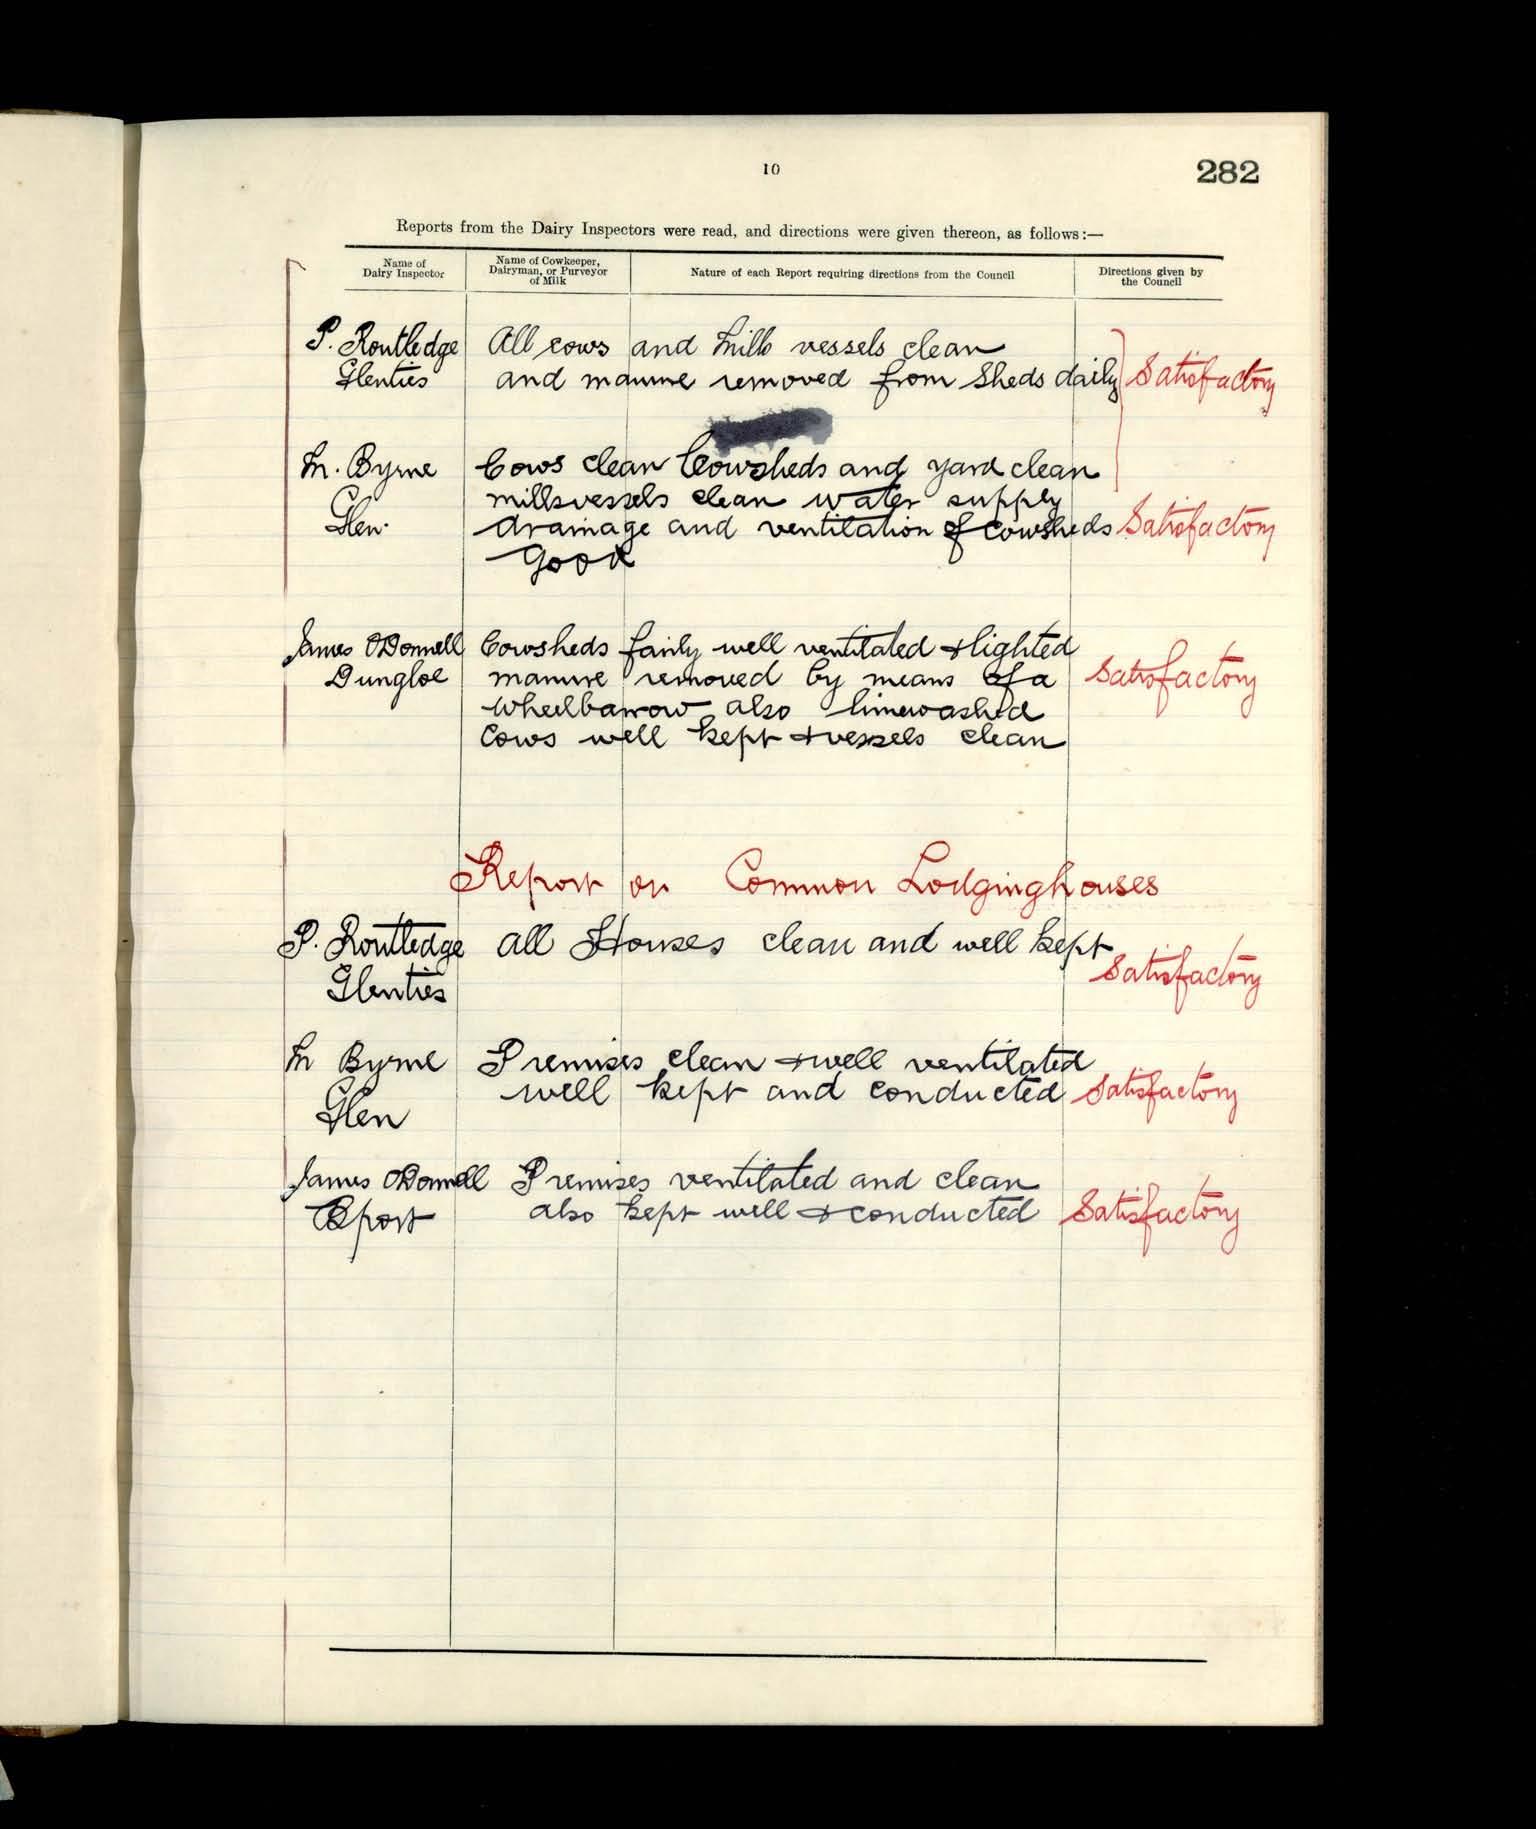 10
282
Reports from the Dairy Inspectors were read, and directions were given thereon, as follows:—
Name of Dairy Inspector
Name of Cowkeeper, Dairyman, or Purveyor of Milk
Nature of each Report requiring directions from the Council
Directions given by the Council
P. Routledge All cows and milk vessels clean
Glenties and manure removed from Sheds daily Satisfactory
M. Byrne Cows clean Cowsheds and yard clean
milkvessels clean water supply
Glen. drainage and ventilation of cowsheds Satisfactory
Good
James ODonnell Cowsheds fairly well ventilated & lighted
Dungloe manure removed by means of a Satisfactory
wheelbarrow also limewashed
Cows well kept & vessels clean
Report on Common Lodginghouses
P. Routledge all Houses clean and well kept
Glenties Satisfactory
M Byrne Premises clean & well ventilated
well kept and conducted Satisfactory
Glen
James ODonnell Premises ventilated and clean
Bport also kept well & conducted Satisfactory